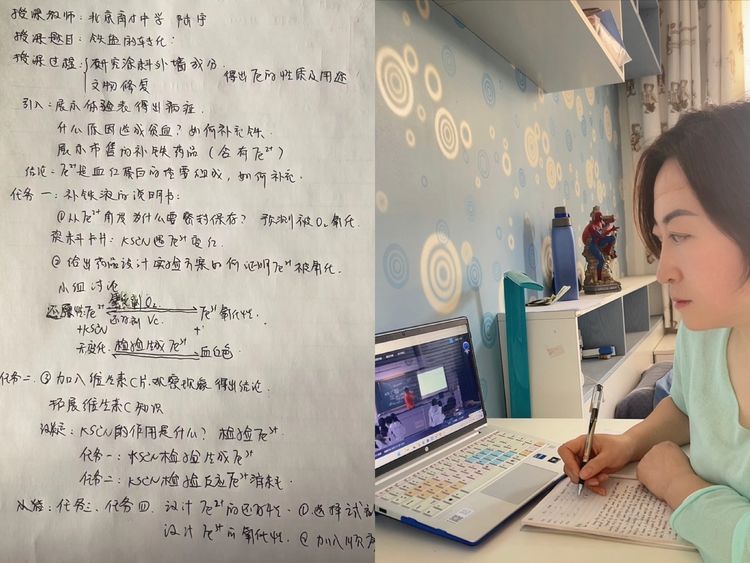 授课教师：北京育才中学 陆宇
授课题目：铁盐的转化：
授课过程：研究涂料外墙成分
文物修复
得出Fe的性质及用途
引入：展示体验表得出病症.
什么原因造成贫血？如何补充铁.
展示市售的补铁药品（含有Fe²⁺）
结论：Fe²⁺是血红蛋白的重要组成，如何补充.
任务一：补铁液的说明书：
①从Fe²⁺角度为什么要密封保存？预测被O₂氧化.
资料卡片：KSCN遇Fe³⁺变红.
②给出药品设计实验方案如何证明Fe²⁺被氧化.
小组讨论
还原性Fe²⁺ 氧化剂O₂ Fe³⁺氧化性.
还原剂Vc.
+KSCN +
无变化. 检验生成Fe³⁺ 血红色
任务二.③加入维生素C片.观察现象得出结论.
拓展维生素C知识
设疑：KSCN的作用是什么？检验Fe³⁺
任务一：KSCN检验生成Fe³⁺
任务二：KSCN检验反应Fe³⁺消耗.
任务三、任务四.设计Fe²⁺的还原性.①选择试剂
设计Fe³⁺的氧化性.②加入顺序